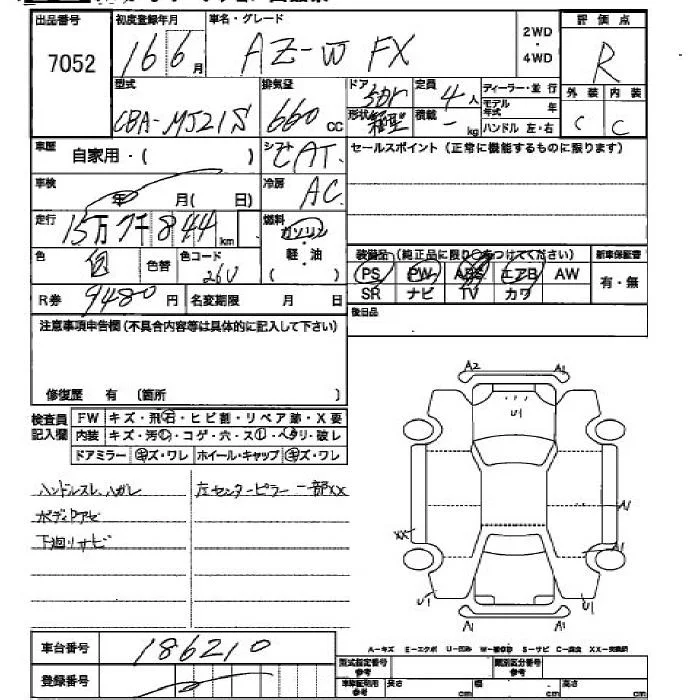 出品番号 初度登録年月 車名・グレード 2WD・4WD 評価点
7052 16 6月 AZ-W FX R
型式 排気量 ドア 定員 ディーラー・並行 外装 内装
CBA-MJ21S 660cc 5ドア 4人 モデル年式 年 C C
形状 箱型 積載 - kg ハンドル 左・右
車歴 自家用・( ) シフト CAT. セールスポイント(正常に機能するものに限ります)
車検 年 月( 日) 冷房 AC
走行 15万7千844km 燃料 ガソリン・軽・油
色 白 色替 色コード 26U ( )
装備品(純正品に限り○をつけてください) 新車保証書
PS PW ABS エアB AW 有・無
SR ナビ TV カワ
R券 9480円 名変期限 月 日 後日品
注意事項申告欄(不具合内容等は具体的に記入して下さい)
修復歴 有 (箇所 )
検査員記入欄 FW キズ・飛石・ヒビ割・リペア跡・X要
内装 キズ・汚レ・コゲ・穴・スレ・ヘタリ・破レ
ドアミラー キズ・ワレ ホイール・キャップ キズ・ワレ
A2 A1
U1
ハンドルスレ、ハガレ 左センターピラー 一部XX
ボディアセ
下廻りサビ
A1
XX
A1
U1 U1
A1 A1
車台番号 186210
A-キズ E-エクボ U-凹み W-補修跡 S-サビ C-腐食 XX-交換済
登録番号
型式指定番号参考 類別区分番号参考
車検証利用参考 長さ cm 幅 cm 高さ cm